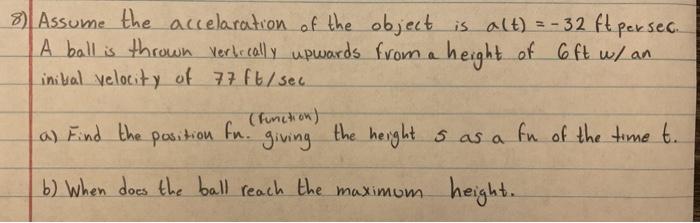 8) Assume the accelaration of the object is a(t) = -32 ft per sec.
A ball is thrown vertically upwards from a height of 6 ft w/ an
initial velocity of 77 ft/sec
(function)
a) Find the position fn. giving the height s as a fn of the time t.
b) When does the ball reach the maximum height.